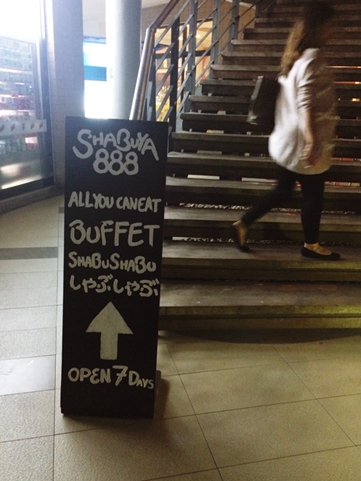 SHABUYA
888
ALL YOU CAN EAT
BUFFET
SHABUSHABU
しゃぶしゃぶ
OPEN 7 DAYS